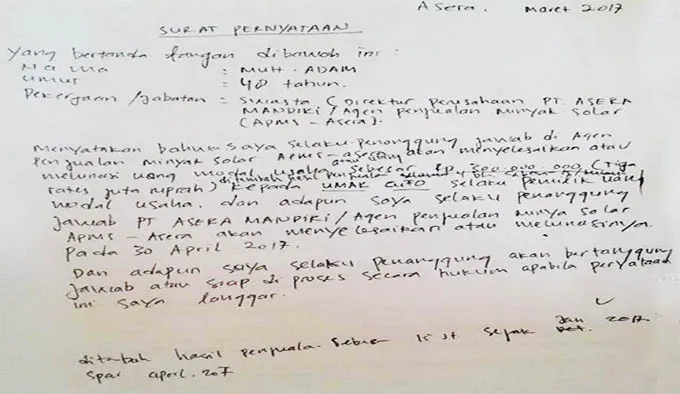 Asera. Maret 2017
SURAT PERNYATAAN
Yang bertanda tangan dibawah ini :
Nama : MUH. ADAM
Umur : 48 tahun.
Pekerjaan / Jabatan : Swasta ( Direktur perusahaan PT. ASERA
MANDIRI / Agen penjualan minyak solar
(APMS - Asera).
Menyatakan bahwa saya selaku penanggung jawab di Agen
penjualan minyak solar APMS - asera akan menyelesaikan atau
melunasi uang modal usaha sebesar Rp 300.000.000 (Tiga
ratus juta rupiah) kepada UMAR selaku pemilik uang
modal usaha. dan adapun saya selaku penanggung
jawab PT ASERA MANDIRI / Agen penjualan minya solar
APMS - Asera akan menyelesaikan atau melunasinya.
pada 30 April 2017.
Dan adapun saya selaku penanggung akan bertanggung
jawab atau siap di proses secara hukum apabila peryataan
ini saya langgar.
Jan 2017
ditambah hasil penjuala sejak
april. 207